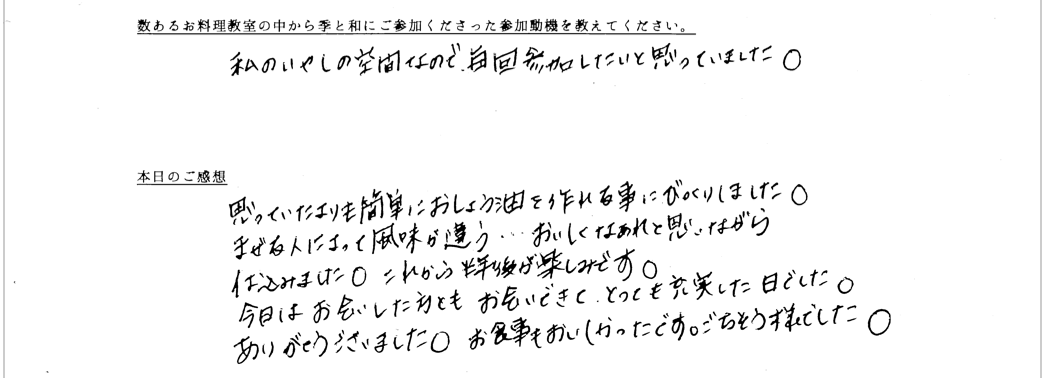 数あるお料理教室の中から季と和にご参加くださった参加動機を教えてください。
私のいやしの空間なので、毎回参加したいと思っていました○
本日のご感想
思っていたよりも簡単におしょう油を作れる事にびっくりしました○
まぜる人によって風味が違う…おいしくなあれと思いながら
仕込みました○ これから半年後が楽しみです○
今日はお会いした方ともお会いできて、とっても充実した日でした○
ありがとうございました○ お食事もおいしかったです。ごちそう様でした○